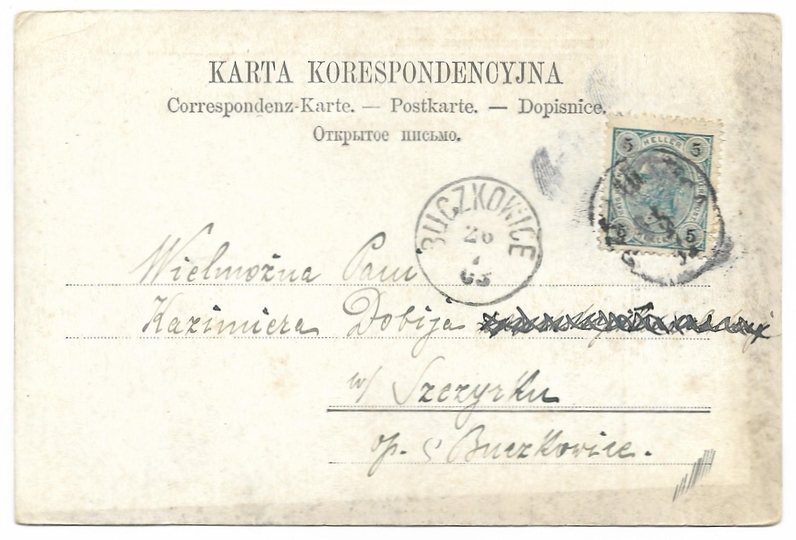 KARTA KORESPONDENCYJNA
Correspondenz-Karte. — Postkarte. — Dopisnice.
Открытое письмо.
5 HELLER 5
5 5
BUCZKOWICE
26
7
03
Wielmożna Pani
Kazimiera Dobija
w/ Szczyrku
op. Buczkowice.